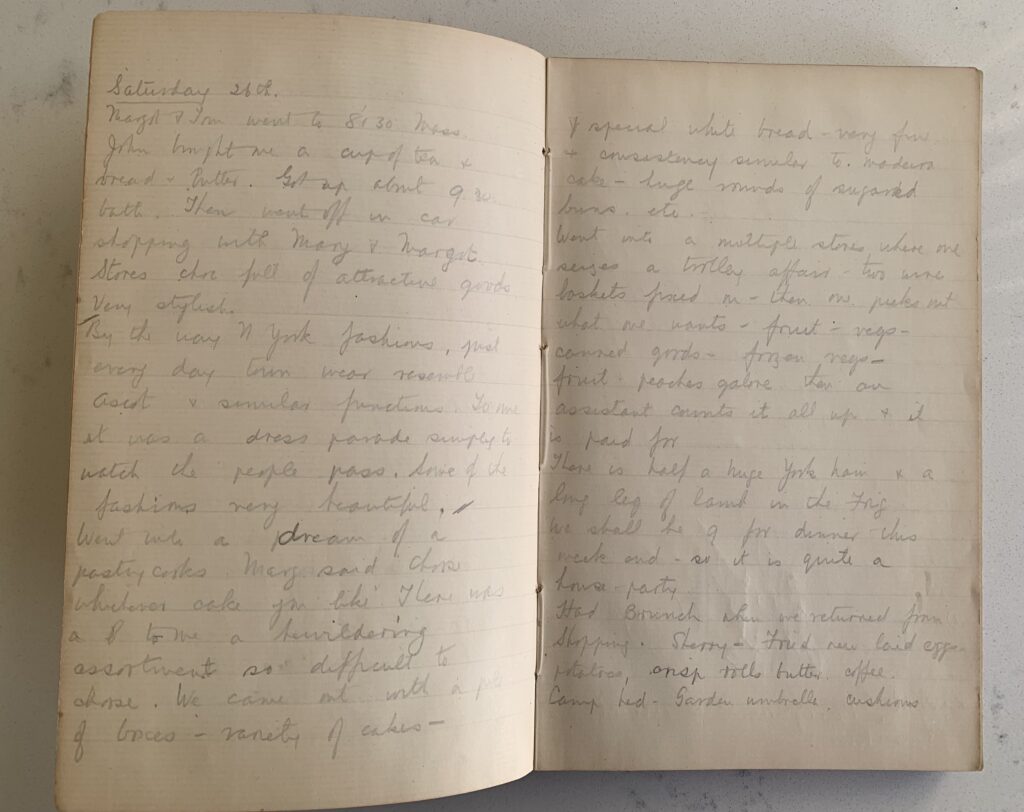 Saturday 26th.
Margot & Tom went to 8.30 Mass.
John brought me a cup of tea &
bread & Butter. Got up about 9.30
bath. Then went off in car
shopping with Mary & Margot.
Stores choc full of attractive goods
very stylish.
By the way N York fashions, just
every day town wear resemble
Ascot & similar functions. To me
it was a dress parade simply to
watch the people pass. Some of the
fashions very beautiful.
Went into a dream of a
pastry cooks. Mary said chose
whatever cake you like. There was
a to me a bewildering
assortment so difficult to
choose. We came out with a pile
of boxes - variety of cakes -
& special white bread - very fine
& consistency similar to madeira
cake - huge rounds of sugared
buns. etc.
Went into a multiple stores where one
seizes a trolley affair - two wire
baskets fixed on - then one picks out
what one wants - fruit - vegs -
canned goods - frozen vegs -
fruit peaches galore then an
assistant counts it all up & it
is paid for
There is half a huge York ham & a
long leg of lamb in the Frig
We shall be 9 for dinner this
week end - so it is quite a
house-party.
Had Brunch when we returned from
Shopping. Sherry - Fried new laid eggs -
potatoes, crisp rolls butter, coffee.
Camp bed - Garden umbrella, cushions